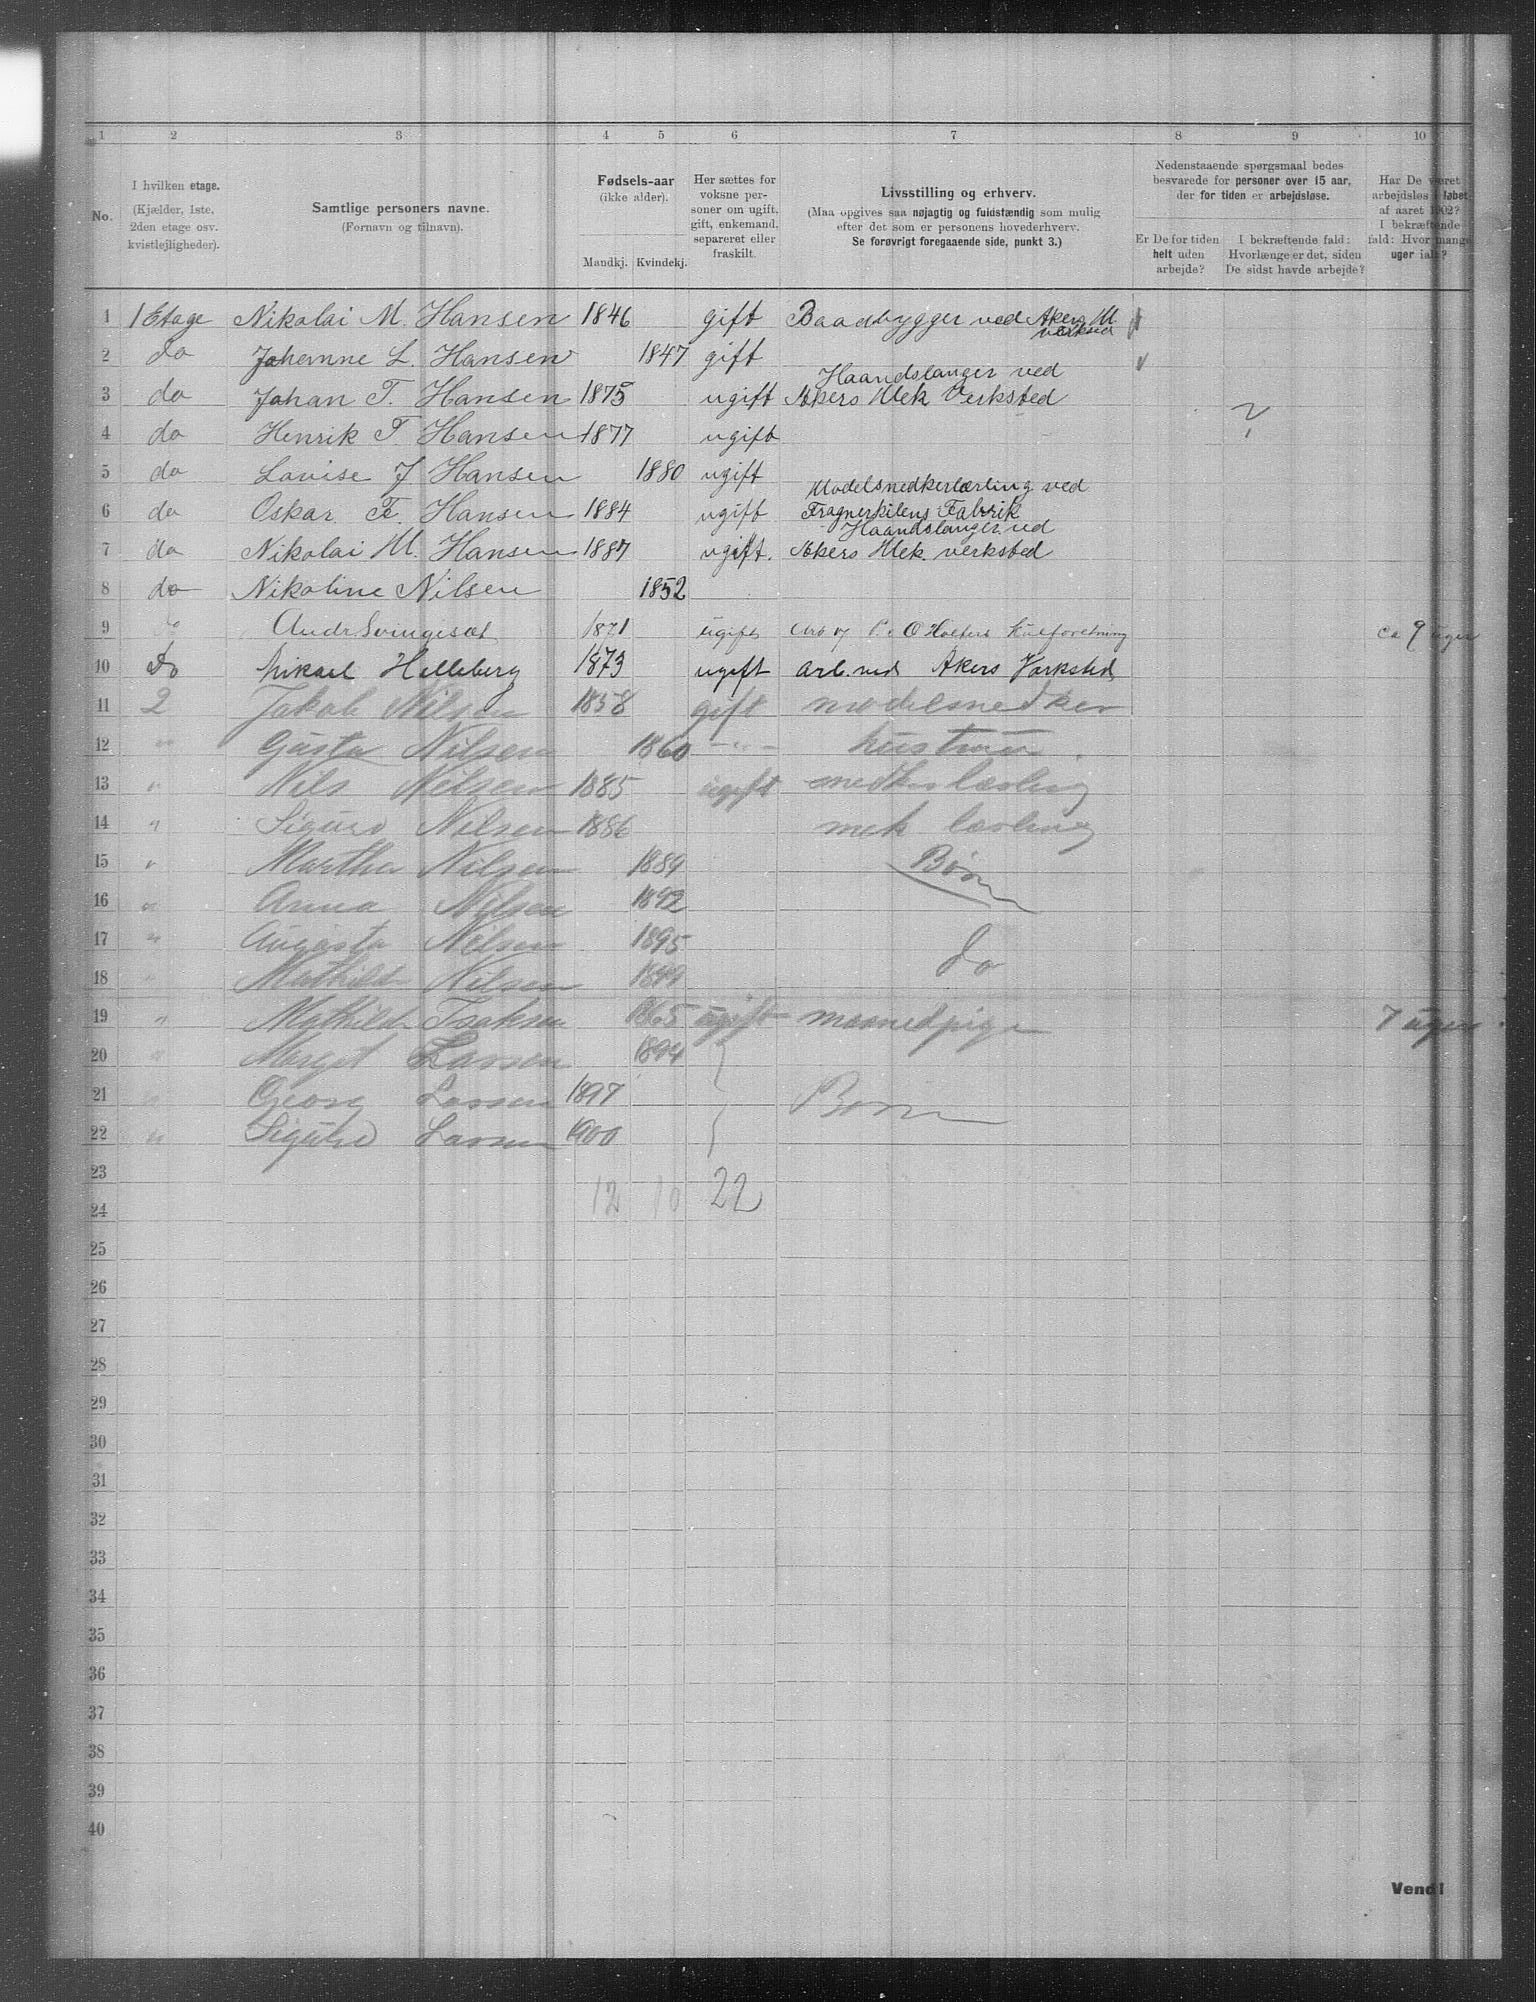 1 2 3 4 5 6 7 8 9 10
No.
I hvilken etage.
(Kjælder, 1ste,
2den etage osv.
kvistlejligheder).
Samtlige personers navne.
(Fornavn og tilnavn).
Fødsels-aar
(ikke alder).
Mandkj. Kvindekj.
Her sættes for
voksne per-
soner om ugift,
gift, enkemand,
separeret eller
fraskilt.
Livsstilling og erhverv.
(Maa opgives saa nøjagtig og fuldstændig som mulig
efter det som er personens hovederhverv.
Se forøvrigt foregaaende side, punkt 3.)
Nedenstaaende spørgsmaal bedes
besvarede for personer over 15 aar,
der for tiden er arbejdsløse.
Er De for tiden
helt uden
arbejde?
I bekræftende fald:
Hvorlænge er det, siden
De sidst havde arbejde?
Har De været
arbejdsløs i løbet
af aaret 1902?
I bekræftende
fald: Hvor mange
uger ialt?
1 1 Etage Nikolai M. Hansen 1846 gift Baadbygger ved Akers M.
2 do Johanne L. Hansen 1847 gift
Haandslanger ved
3 do Johan T. Hansen 1875 ugift Akers Mek Verksted
4 do Henrik T. Hansen 1877 ugift ?
5 do Lovise J Hansen 1880 ugift
Modelsnedkerlærling ved
6 do Oskar F. Hansen 1884 ugift Fragnerkilens Fabrik
Haandslanger ved
7 do Nikolai M. Hansen 1887 ugift. Akers Mek. verksted
8 do Nikoline Nilsen 1852
9 do Andr Svingesæt 1871 ugift Arb O Holters Kulforetning ca 9 uger
10 Do Mikael Helleberg 1873 ugift Arb. ved Akers Værksted
11 2 Jakob Nilsen 1858 gift modelsnedker
12 " Gusta Nilsen 1860 -"- hustru
13 " Nils Nilsen 1885 ugift snedker lærling
14 " Sigurd Nilsen 1886 mek lærling
15 " Martha Nilsen 1889 Børn
16 " Anna Nilsen 1892
17 " Augusta Nilsen 1895 do
18 " Mathilde Nilsen
19 " Mathilde Isaksen 1865 ugift maanedpige 7 uger
20 " Margit Larsen 1894
21 " Georg Larsen 1897 Børn
22 " Sigurd Larsen 1900
23
12 10 22
24
25
26
27
28
29
30
31
32
33
34
35
36
37
38
39
40
Vend!